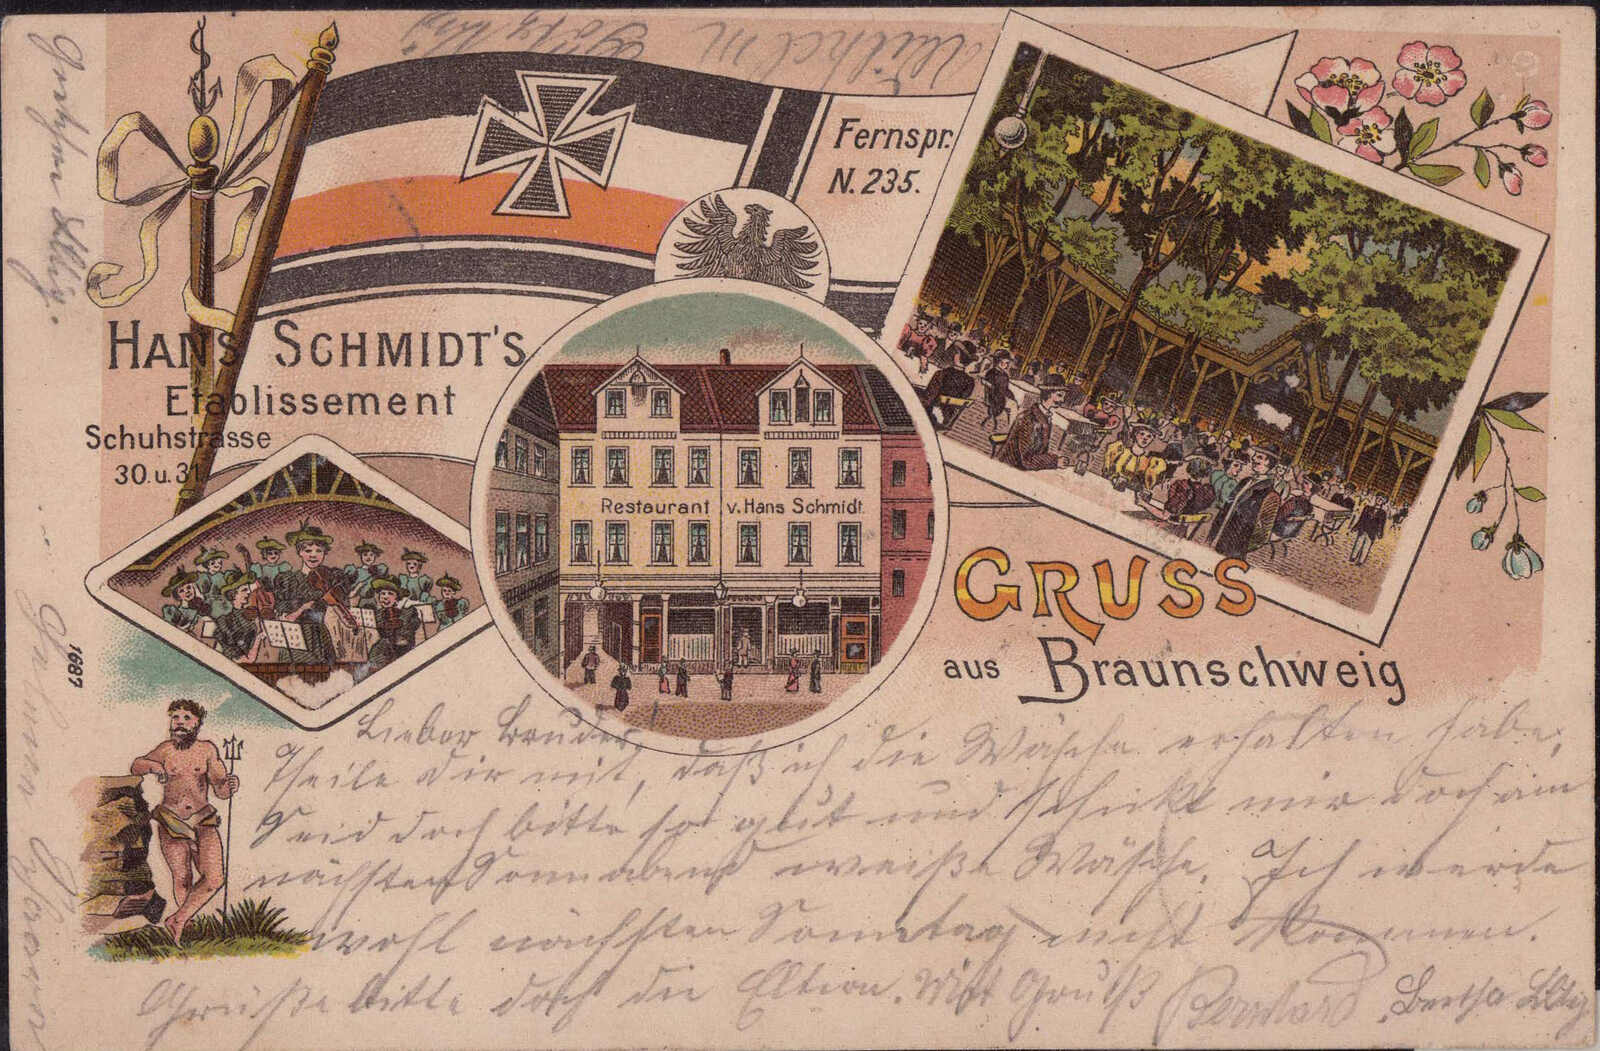 Fernspr.
N. 235.
HANS SCHMIDT'S
Etablissement
Schuhstrasse
30. u. 31
Restaurant v. Hans Schmidt.
GRUSS
aus Braunschweig
1687
Lieber Bruder!
Theile dir mit, daß ich die Wäsche erhalten habe.
Seid doch bitte so gut und schickt mir doch am
nächsten Sonnabend weiße Wäsche. Ich werde
wohl nächsten Sonntag nicht kommen.
Grüße bitte doch die Eltern. Mit Gruß Bernhard
Bertha